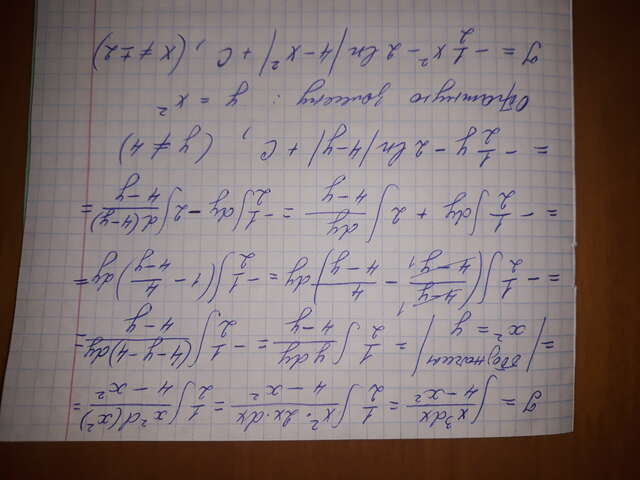 J = ∫ x³dx / (4 - x²) = 1/2 ∫ x² · 2x · dx / (4 - x²) = 1/2 ∫ x² d(x²) / (4 - x²) =
= | обозначим x² = y | = 1/2 ∫ y dy / (4 - y) = - 1/2 ∫ (4 - y - 4) dy / (4 - y) =
= - 1/2 ∫ ( (4 - y) / (4 - y) - 4 / (4 - y) ) dy = - 1/2 ∫ ( 1 - 4 / (4 - y) ) dy =
= - 1/2 ∫ dy + 2 ∫ dy / (4 - y) = - 1/2 ∫ dy - 2 ∫ d(4 - y) / (4 - y) =
= - 1/2 y - 2 ln |4 - y| + C , ( y ≠ 4 )
Обратную замену : y = x²
J = - 1/2 x² - 2 ln |4 - x²| + C , ( x ≠ ± 2 )